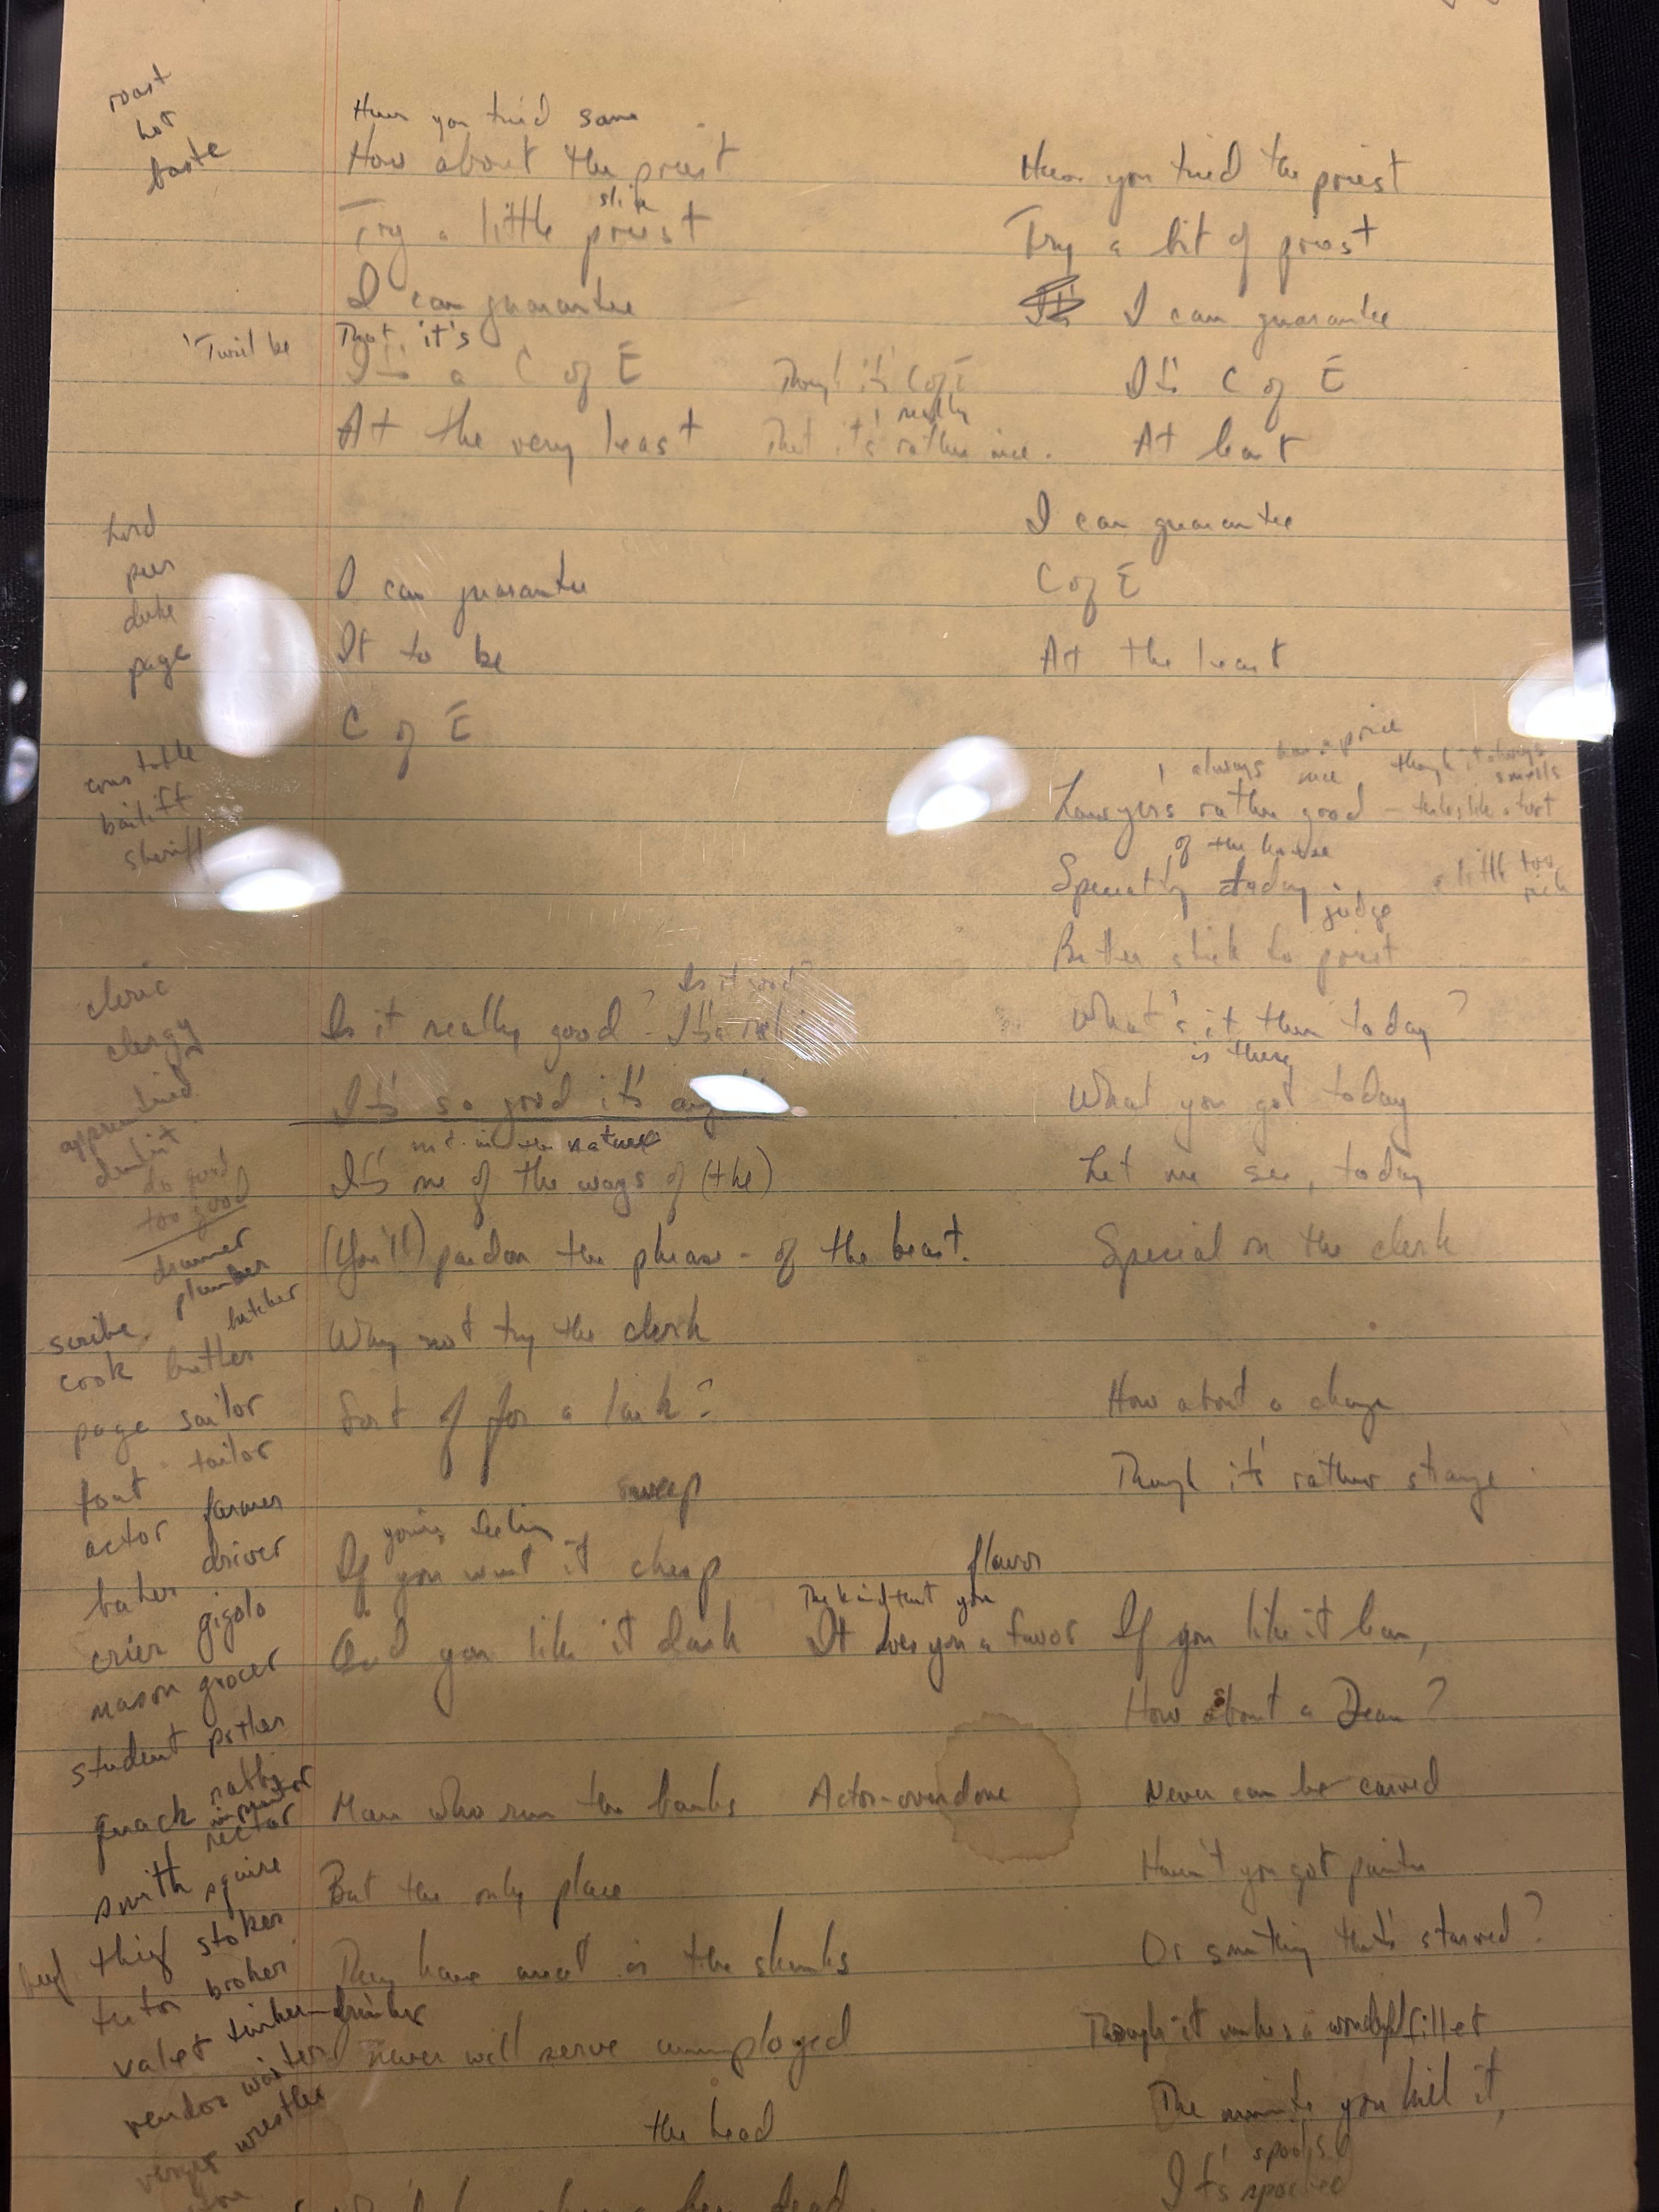 roast
hot
baste
Have you tried some
How about the priest
slice
Try a little priest
I can guarantee
'Twill be
That it's
It's a C of E
At the very least
Though it's C of E
really
That it's rather nice.
Have you tried the priest
Try a bit of priest
It's I can guarantee
It's C of E
At least
I can guarantee
C of E
At the least
lord
peer
duke
page
I can guarantee
It to be
C of E
constable
bailiff
sheriff
always has a price
nice though it always smells
Lawyer's rather good
of the house
Specialty today
a little too rich
judge
Better stick to priest
cleric
clergy
apprenticed
dentist
do good
too good
Is it good?
Is it really good?
It's so good it's
nature
It's one of the ways of (the)
(You'll) pardon the phrase - of the beast.
Why not try the clerk
Sort of for a lark?
What's it then today?
is there
What you got today
Let me see, today
Special on the clerk
How about a change
Though it's rather strange
drummer
plumber
scribe butcher
cook butler
page sailor
tout tailor
actor farmer
baker driver
crier gigolo
mason grocer
student potter
quack rabbi
rector
smith squire
thief stoker
tutor broker
valet tinker-drinker
vendor waiter
verger wrestler
sweep
you're feeling
If you want it cheap
And you like it dark
flavor
The kind that you
It does you a favor
If you like it lean,
How about a Dean?
Men who run the banks
Actor-overdone
Never can be carved
But the only place
Haven't you got painter
They have meat is the shanks
Or something that's starved?
never will serve unemployed
Though it makes a wonderful fillet
The minute you kill it,
the head
It's spoiled
It's spoiled